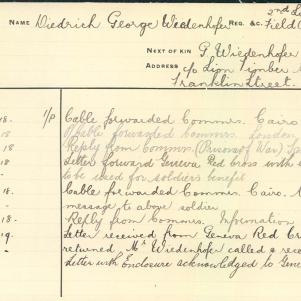 2nd L
NAME Diedrich George Wiedenhofer REG. &C. Field
NEXT OF KIN P. Wiedenhofer
ADDRESS c/o Lion Timber
Franklin Street.
18. 1/P Cable forwarded Commrs. Cairo
18. Cable forwarded Commrs. London
Reply from Commrs. (Prisoner of War)
Letter forward Geneva Red Cross with
to be used for soldiers benefit
18. Cable forwarded Commrs. Cairo.
message to above soldier
18. Reply from Commrs. Information
19. Letter received from Geneva Red Cr
returned, Mr Wiedenhofer called & rece
Letter with Enclosure acknowledged to Gene